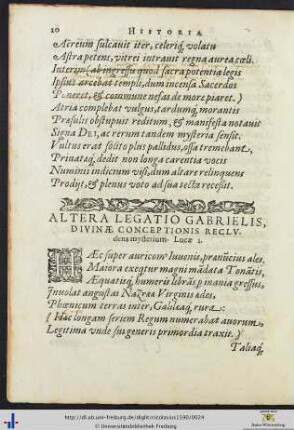 20 HISTORIA
Aëreum sulcauit iter, celeriq́ volatu
Astra petens, vitrei intrauit regna aurea cœli.
Interim (ab ingressu quod sacra potentia legis
Ipsius arcebat templi, dum incensa Sacerdos
Poneret, & commune nefas de more piaret.)
Atria complebat vulgus, tardumq́, morantis
Præsulis obstupuit reditum, & manifesta notauit
Signa DEI, ac rerum tandem mysteria sensit.
Vultus erat solito plus pallidus, ossa tremebant,
Priuataq́, dedit non longa carentia vocis
Numinis indicium visi, dum altare relinquens
Prodijt, & plenus voto ad sua tecta recessit.
ALTERA LEGATIO GABRIELIS,
DIVINÆ CONCEPTIONIS RECLV-
dens mysterium. Lucæ 1.
HÆc super auricomus Iuuenis, prænuncius ales,
Maiora exequitur magni mãdata Tonãtis,
Æquatisq́, humeris librãs p inania gressus,
Inuolat angustas Nazaræa Virginis ædes,
Phœnicum terras inter, Galilæaq́, rura:
(Hæc longam seriem Regum numerabat auorum
Legitima vnde sui generis primordia traxit.)
Taliaq́,
http://dl.ub.uni-freiburg.de/diglit/nicolosius1590/0024
© Universitätsbibliothek Freiburg